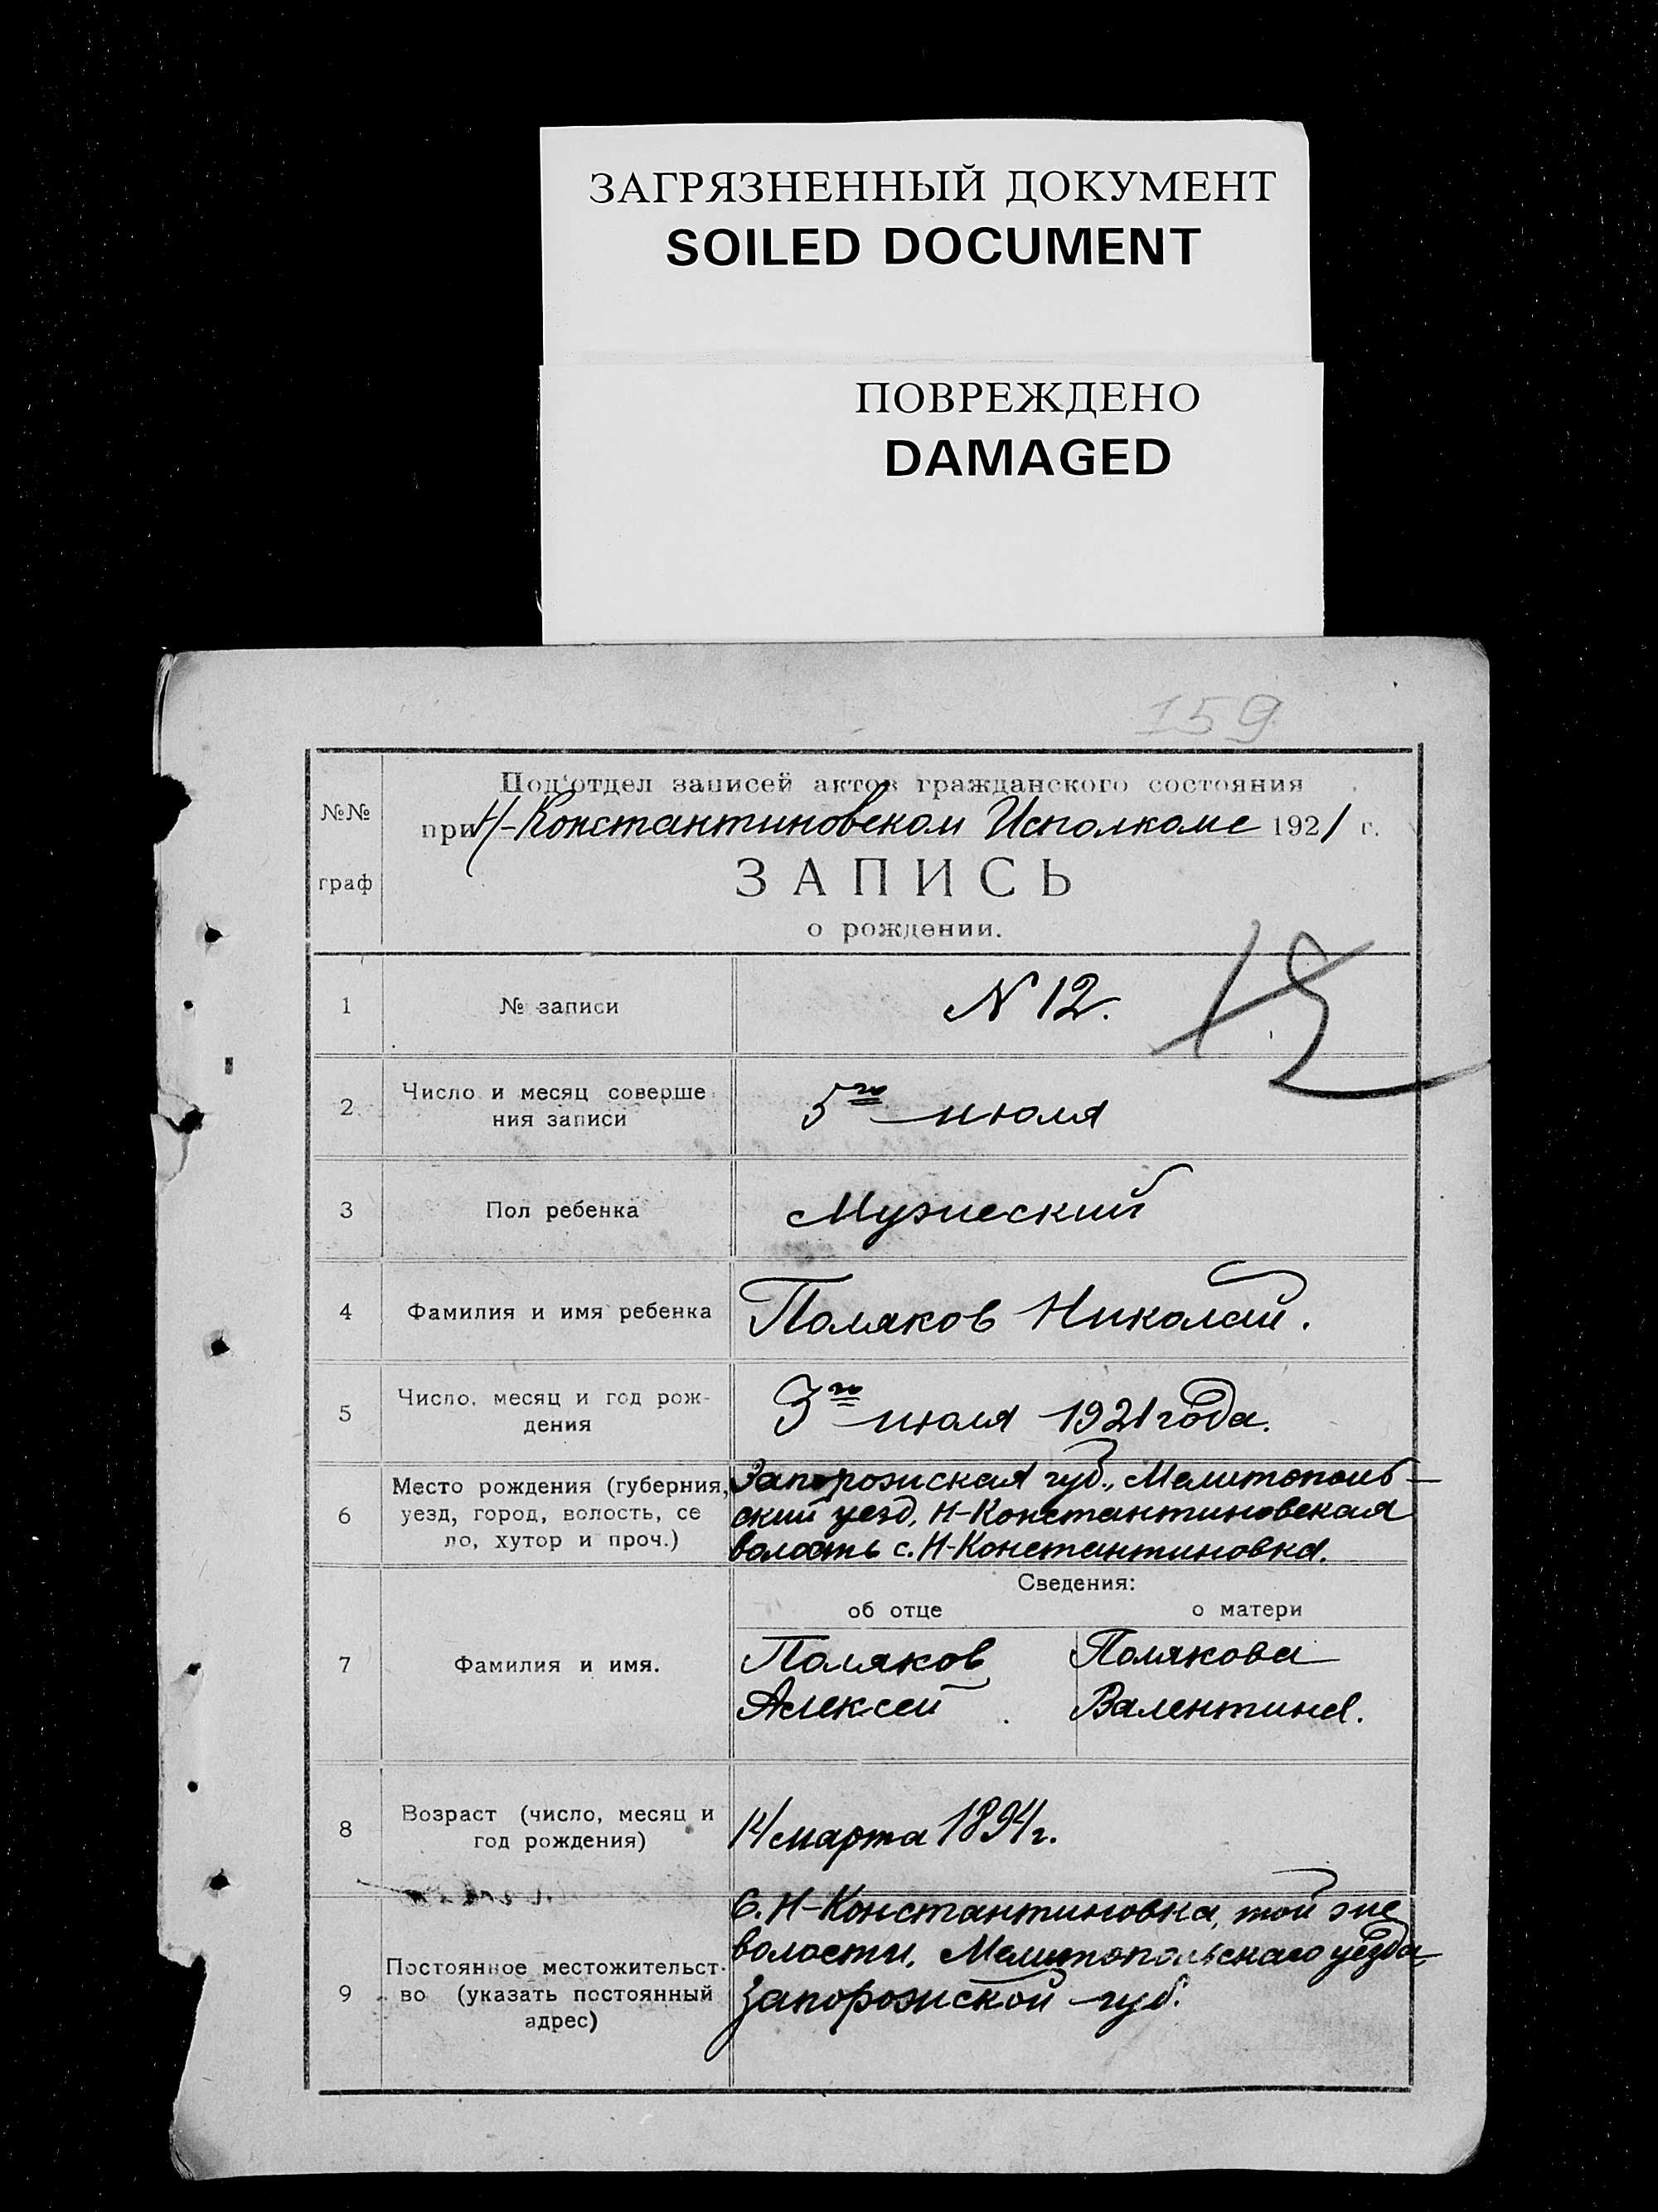 ЗАГРЯЗНЕННЫЙ ДОКУМЕНТ
SOILED DOCUMENT
ПОВРЕЖДЕНО
DAMAGED
159
№№
граф
Под'отдел записей актов гражданского состояния
при Н-Константиновском Исполкоме 1921 г.
ЗАПИСЬ
о рождении.
1
№ записи
N 12.
2
Число и месяц соверше
ния записи
5го июля
3
Пол ребенка
Мужеский
4
Фамилия и имя ребенка
Поляков Николай.
5
Число, месяц и год рож-
дения
3го июля 1921 года.
6
Место рождения (губерния,
уезд, город, волость, се
ло, хутор и проч.)
Запорожская губ., Мелитополь-
ский уезд, Н-Константиновская
волость с. Н-Константиновка.
Сведения:
об отце
о матери
7
Фамилия и имя.
Поляков
Алексей
Полякова
Валентина.
8
Возраст (число, месяц и
год рождения)
14 марта 1894 г.
9
Постоянное местожительст-
во (указать постоянный
адрес)
С. Н-Константиновка, той же
волости, Мелитопольскаго уезда
Запорожской губ.